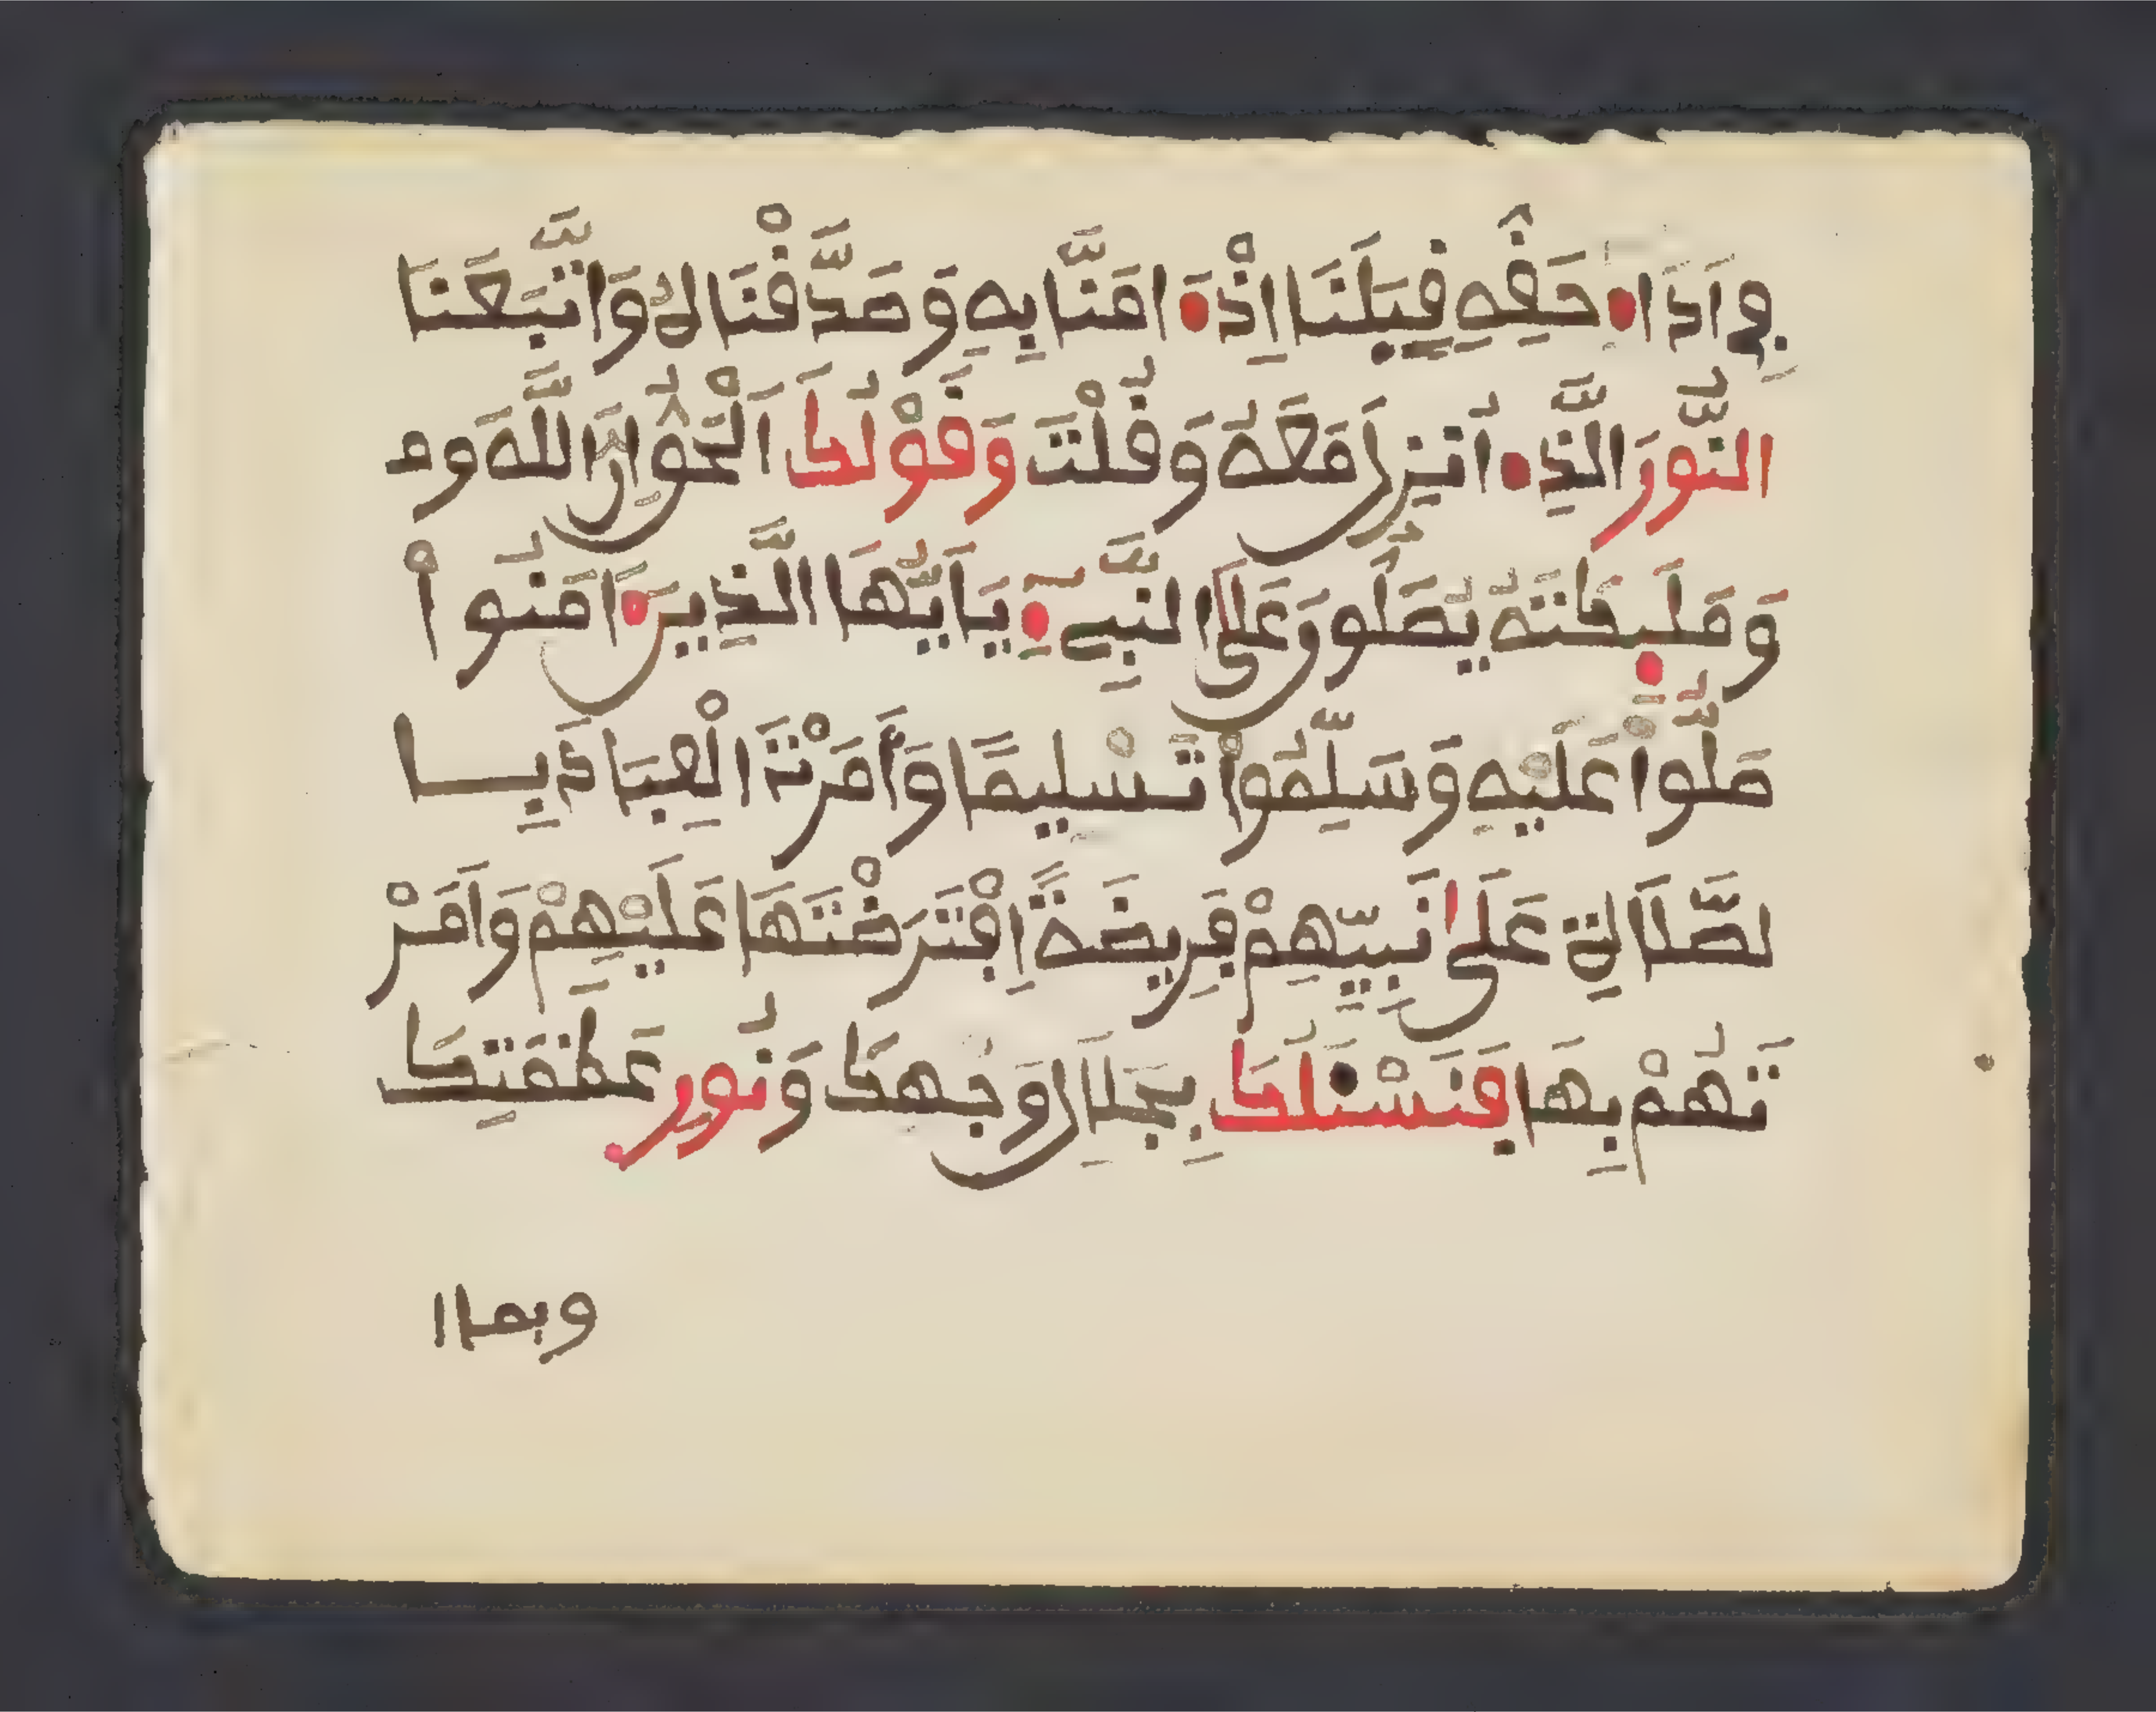 فِي اَدَاءِ حَقِّهِ قِبَلَنَا اِذْ ءَامَنَّا بِهِ وَصَدَّقْنَاهُ وَاتَّبَعْنَا
النُّورَ الَّذِے أُنزِلَ مَعَهُ وَقُلْتَ وَقَوْلُكَ اَلْحَقُّ إِنَّ اللَّهَ وَم
وَمَلَٰٓئِكَتَهُ يُصَلُّونَ عَلَى النَّبِيءِ يَٰٓأَيُّهَا الَّذِينَ ءَامَنُواْ
صَلُّواْ عَلَيْهِ وَسَلِّمُواْ تَسْلِيمًا وَأَمَرْتَ الْعِبَادَ بِا
لصَّلَاةِ عَلَى نَبِيِّهِمْ فَرِيضَةً اِفْتَرَضْتَهَا عَلَيْهِمْ وَأَمَرْ
تَهُمْ بِهَا فَنَسْئَلُكَ بِجَلَالِ وَجْهِكَ وَنُورِ عَظَمَتِكَ
وبما ا